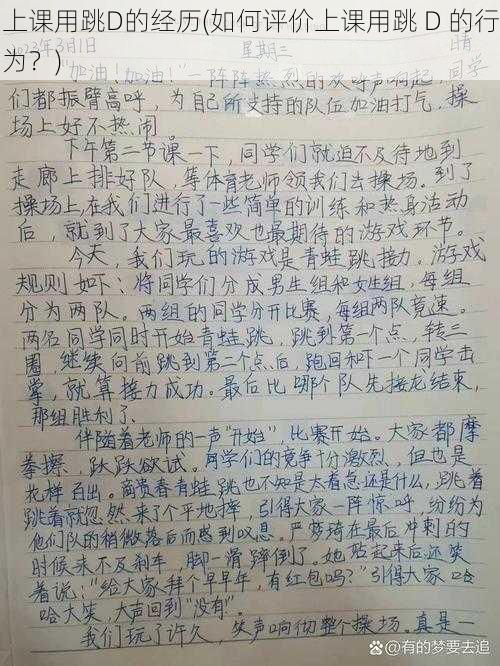 上课用跳D的经历(如何评价上课用跳 D 的行
为？)
2023年3月1日 星期三 晴
“加油！加油！”一阵阵热烈的欢呼声响起，同学
们都振臂高呼，为自己所支持的队伍加油打气，操
场上好不热闹。
下午第二节课一下，同学们就迫不及待地到
走廊上排好队，等体育老师领我们去操场。到了
操场上，在我们进行了一些简单的训练和热身活动
后，就到了大家最喜欢也最期待的游戏环节。
今天，我们玩的游戏是青蛙跳接力。游戏
规则如下：将同学们分成男生组和女生组，每组
分为两队。两组的同学分开比赛，每组两队竞速。
两名同学同时开始青蛙跳，跳到第一个点，转三
圈，继续向前跳到第二个点后，跑回和下一个同学击
掌，就算接力成功。最后比哪个队先接龙结束，
那组胜利了。
伴随着老师的一声“开始”，比赛开始。大家都摩
拳擦，跃跃欲试。同学们的竞争十分激烈，但也是
花样百出。商贵春青蛙跳也不知是太着急还是什么，跳着
跳着就忽然来了个平地摔，引得大家一阵惊呼，纷纷为
他们队的稍微落后而感到叹息。严梦琦在最后冲刺的
时候来不及刹车，脚一滑蹿倒了。她站起来后还笑
着说：“给大家拜个早早年，有红包吗？”引得大家哈
哈大笑，大声回到“没有”。
我们玩了许久，笑声响彻整个操场。真是一
@有的梦要去追